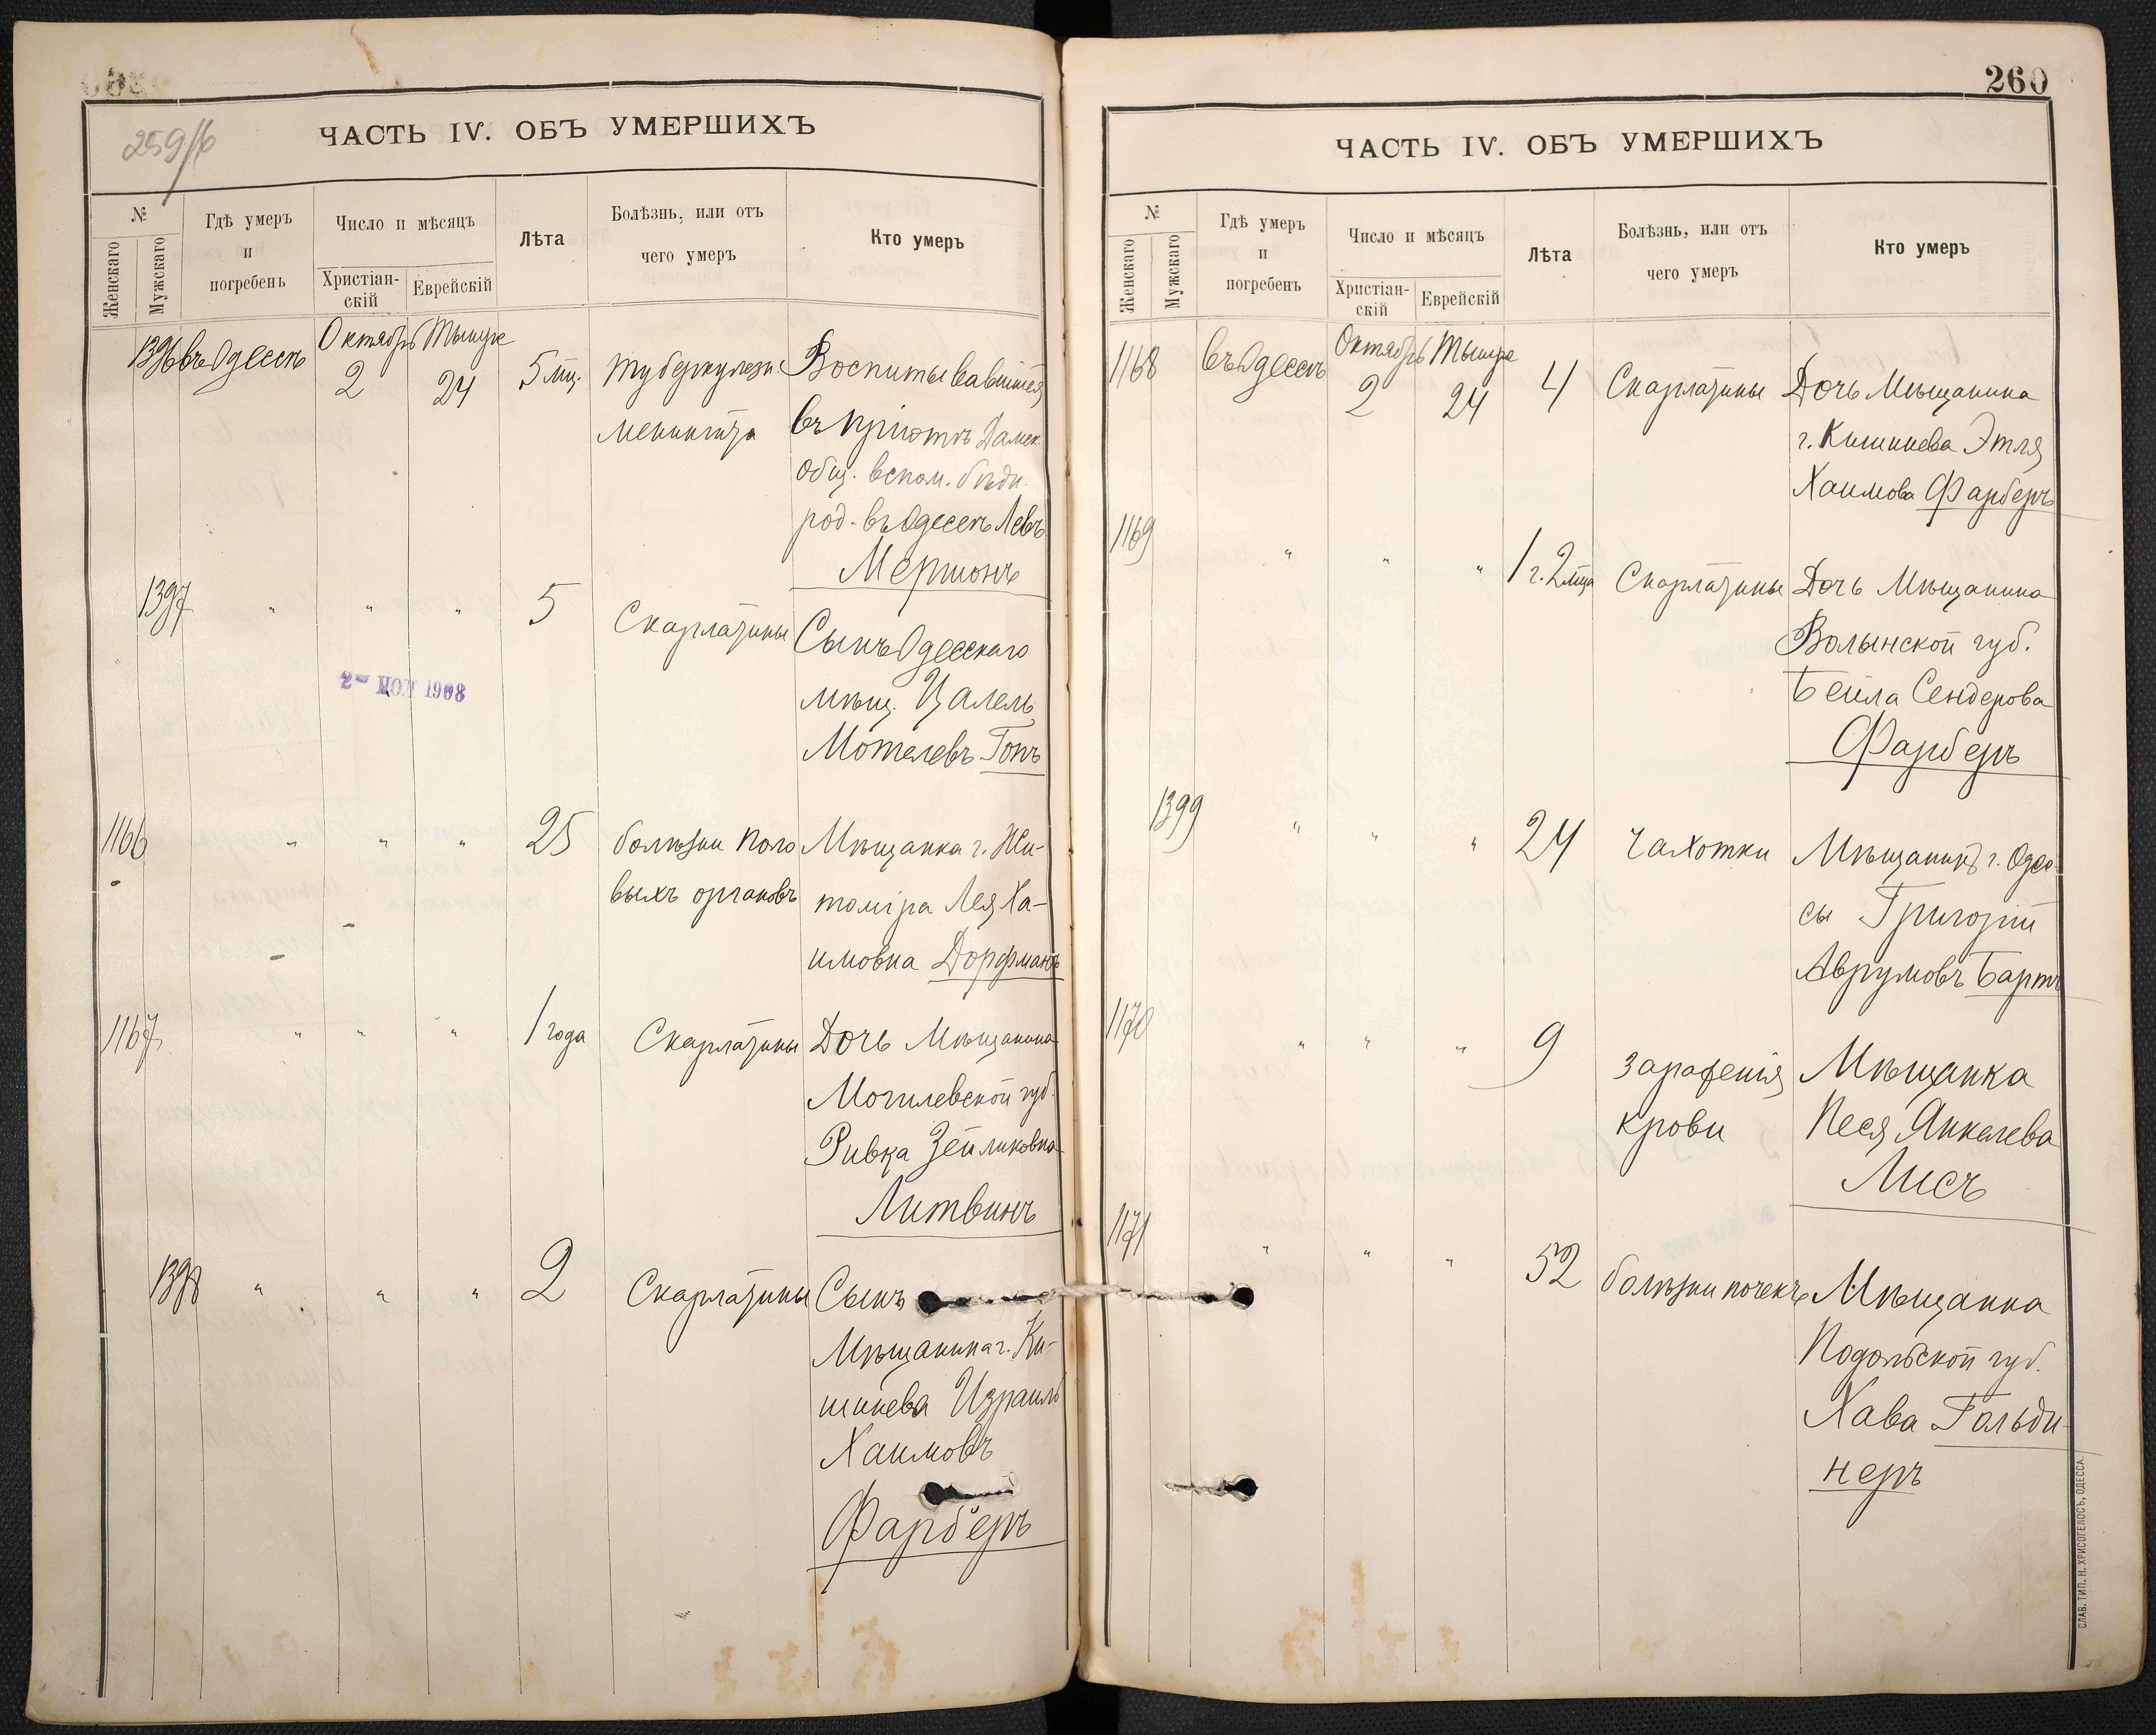 259/б
ЧАСТЬ IV. ОБЪ УМЕРШИХЪ
№
Женскаго
Мужскаго
Гдѣ умеръ
и
погребенъ
Число и мѣсяцъ
Христіан-
скій
Еврейскій
Лѣта
Болѣзнь, или отъ
чего умеръ
Кто умеръ
1396 въ Одессѣ Октябрь 2 Тышре 24 5 мц. туберкулезн. Воспитывавшійся
менингита въ пріютѣ
Общ. вспом. бѣдн.
род. въ Одессѣ Левъ
Мершонъ
1397 " " " 5 Скарлатины Сынъ Одесскаго
мѣщ. Цалель
Мотелевъ Гопъ
2- НОЯ 1908
1166 " " " 25 болѣзни поло Мѣщанка г. Жи-
выхъ органовъ томіра Лея Ха-
имовна Дорфманъ
1167 " " " 1 года Скарлатины Дочь Мѣщанина
Могилевской губ.
Ривка Зейликовна
Литвинъ
1398 " " " 2 Скарлатины Сынъ
Мѣщанина г. Ки-
шинева Израиль
Хаимовъ
Фарберъ
260
ЧАСТЬ IV. ОБЪ УМЕРШИХЪ
№
Женскаго
Мужскаго
Гдѣ умеръ
и
погребенъ
Число и мѣсяцъ
Христіан-
скій
Еврейскій
Лѣта
Болѣзнь, или отъ
чего умеръ
Кто умеръ
1168 въ Одессѣ Октябрь 2 Тышре 24 4 Скарлатины Дочь Мѣщанина
г. Кишинева Этля
Хаимова Фарберъ
1169 " " " 1 г. 2 мца Скарлатины Дочь Мѣщанина
Волынской губ.
Бейла Сендерова
Фарберъ
1399 " " " 24 Чахотки Мѣщанинъ г. Одес-
сы Григорій
Аврумовъ Бартъ
1170 " " " 9 зараженія Мѣщанка
крови Песя Янкелева
Лисъ
1171 " " " 52 болѣзни почекъ Мѣщанка
Подольской губ.
Хава Гольди-
неръ
СЛАВ. ТИП. Н. ХРИСОГЕЛОСЪ, ОДЕССА.